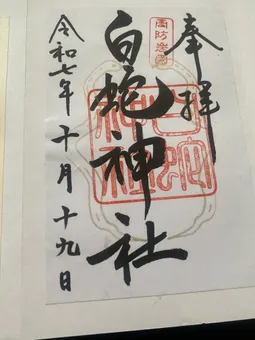 奉拝
周防岩国
白蛇神社
令和七年十月十九日